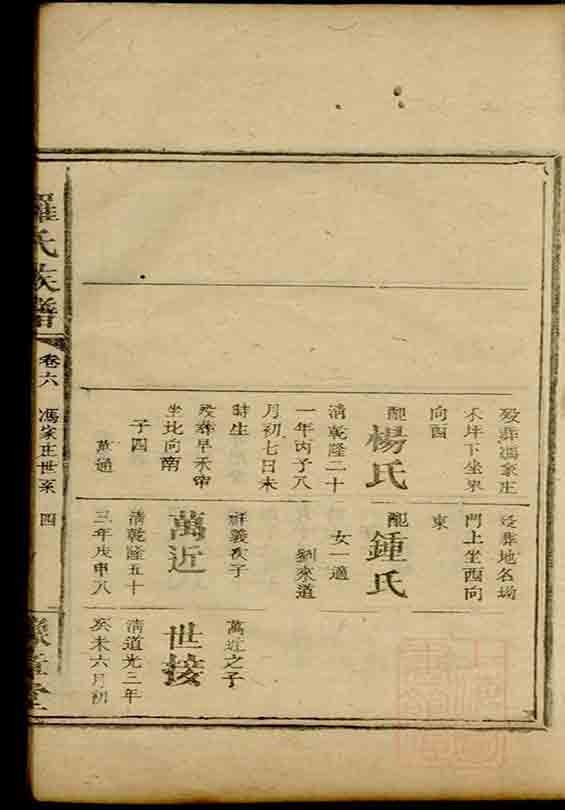 羅氏族譜
卷六
馮家庄世系
四
歿葬馮家庄
禾坪下坐東
向酉
配楊氏
清乾隆二十
一年丙子八
月初七日未
時生
歿葬早禾
坐北向南
子四
萬通
歿葬地名塲
門上坐酉向
東
配鍾氏
女一適
劉來道
萬近
清乾隆五十
三年戊申八
萬近之子
世接
清道光三年
癸未六月初